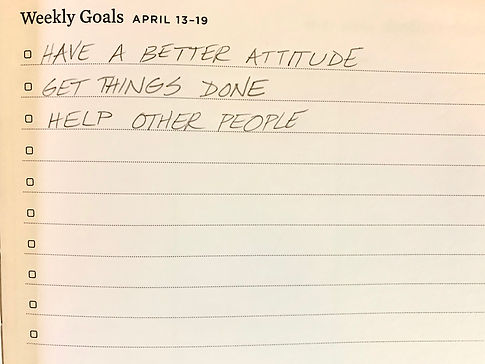 Weekly Goals APRIL 13-19
HAVE A BETTER ATTITUDE
GET THINGS DONE
HELP OTHER PEOPLE